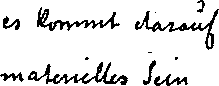 es kommt darauf
materielles Sein